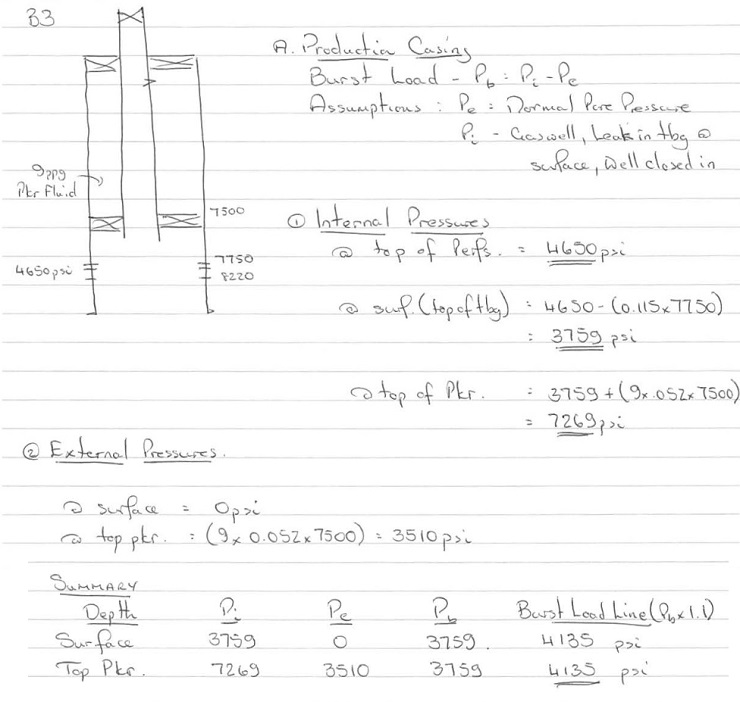 B3
A. Production Casing
Burst Load - Pb = Pi - Pe
Assumptions : Pe = Normal Pore Pressure
Pi - Gaswell, Leak in tbg @
surface, Well closed in
9ppg
Pkr Fluid
7500
7750
8220
4650psi
① Internal Pressures
@ top of Perfs. = 4650psi
@ surf. (top of tbg) = 4650-(0.115x7750)
= 3759 psi
@ top of Pkr. = 3759+(9x.052x7500)
= 7269psi
② External Pressures.
@ surface = 0psi
@ top pkr. = (9x0.052x7500) = 3510psi
SUMMARY
Depth Pi Pe Pb Burst Load Line (Pbx1.1)
Surface 3759 0 3759. 4135 psi
Top Pkr. 7269 3510 3759 4135 psi